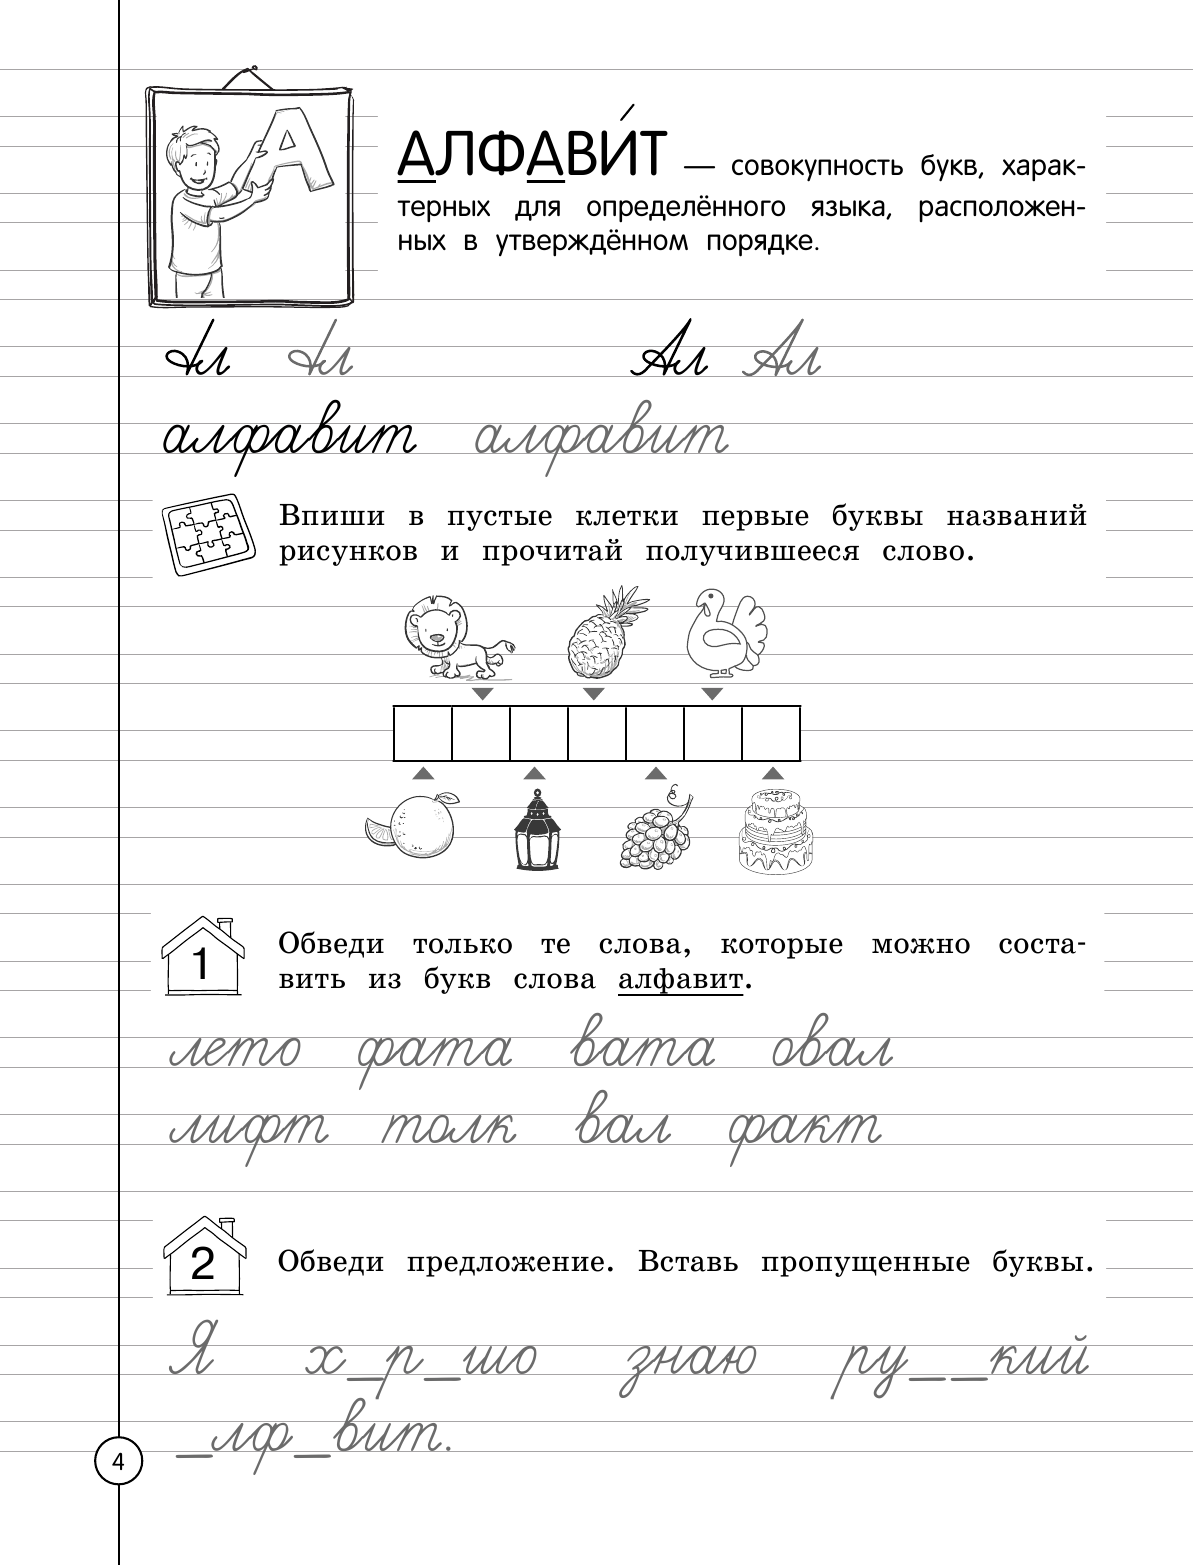 А
АЛФАВИ́Т — совокупность букв, харак-
терных для определённого языка, расположен-
ных в утверждённом порядке.
Ал Ал Ал Ал
алфавит алфавит
Впиши в пустые клетки первые буквы названий
рисунков и прочитай получившееся слово.
1 Обведи только те слова, которые можно соста-
вить из букв слова алфавит.
лето фата вата овал
лифт толк вал факт
2 Обведи предложение. Вставь пропущенные буквы.
Я х_р_шо знаю ру__кий
_лф_вит.
4